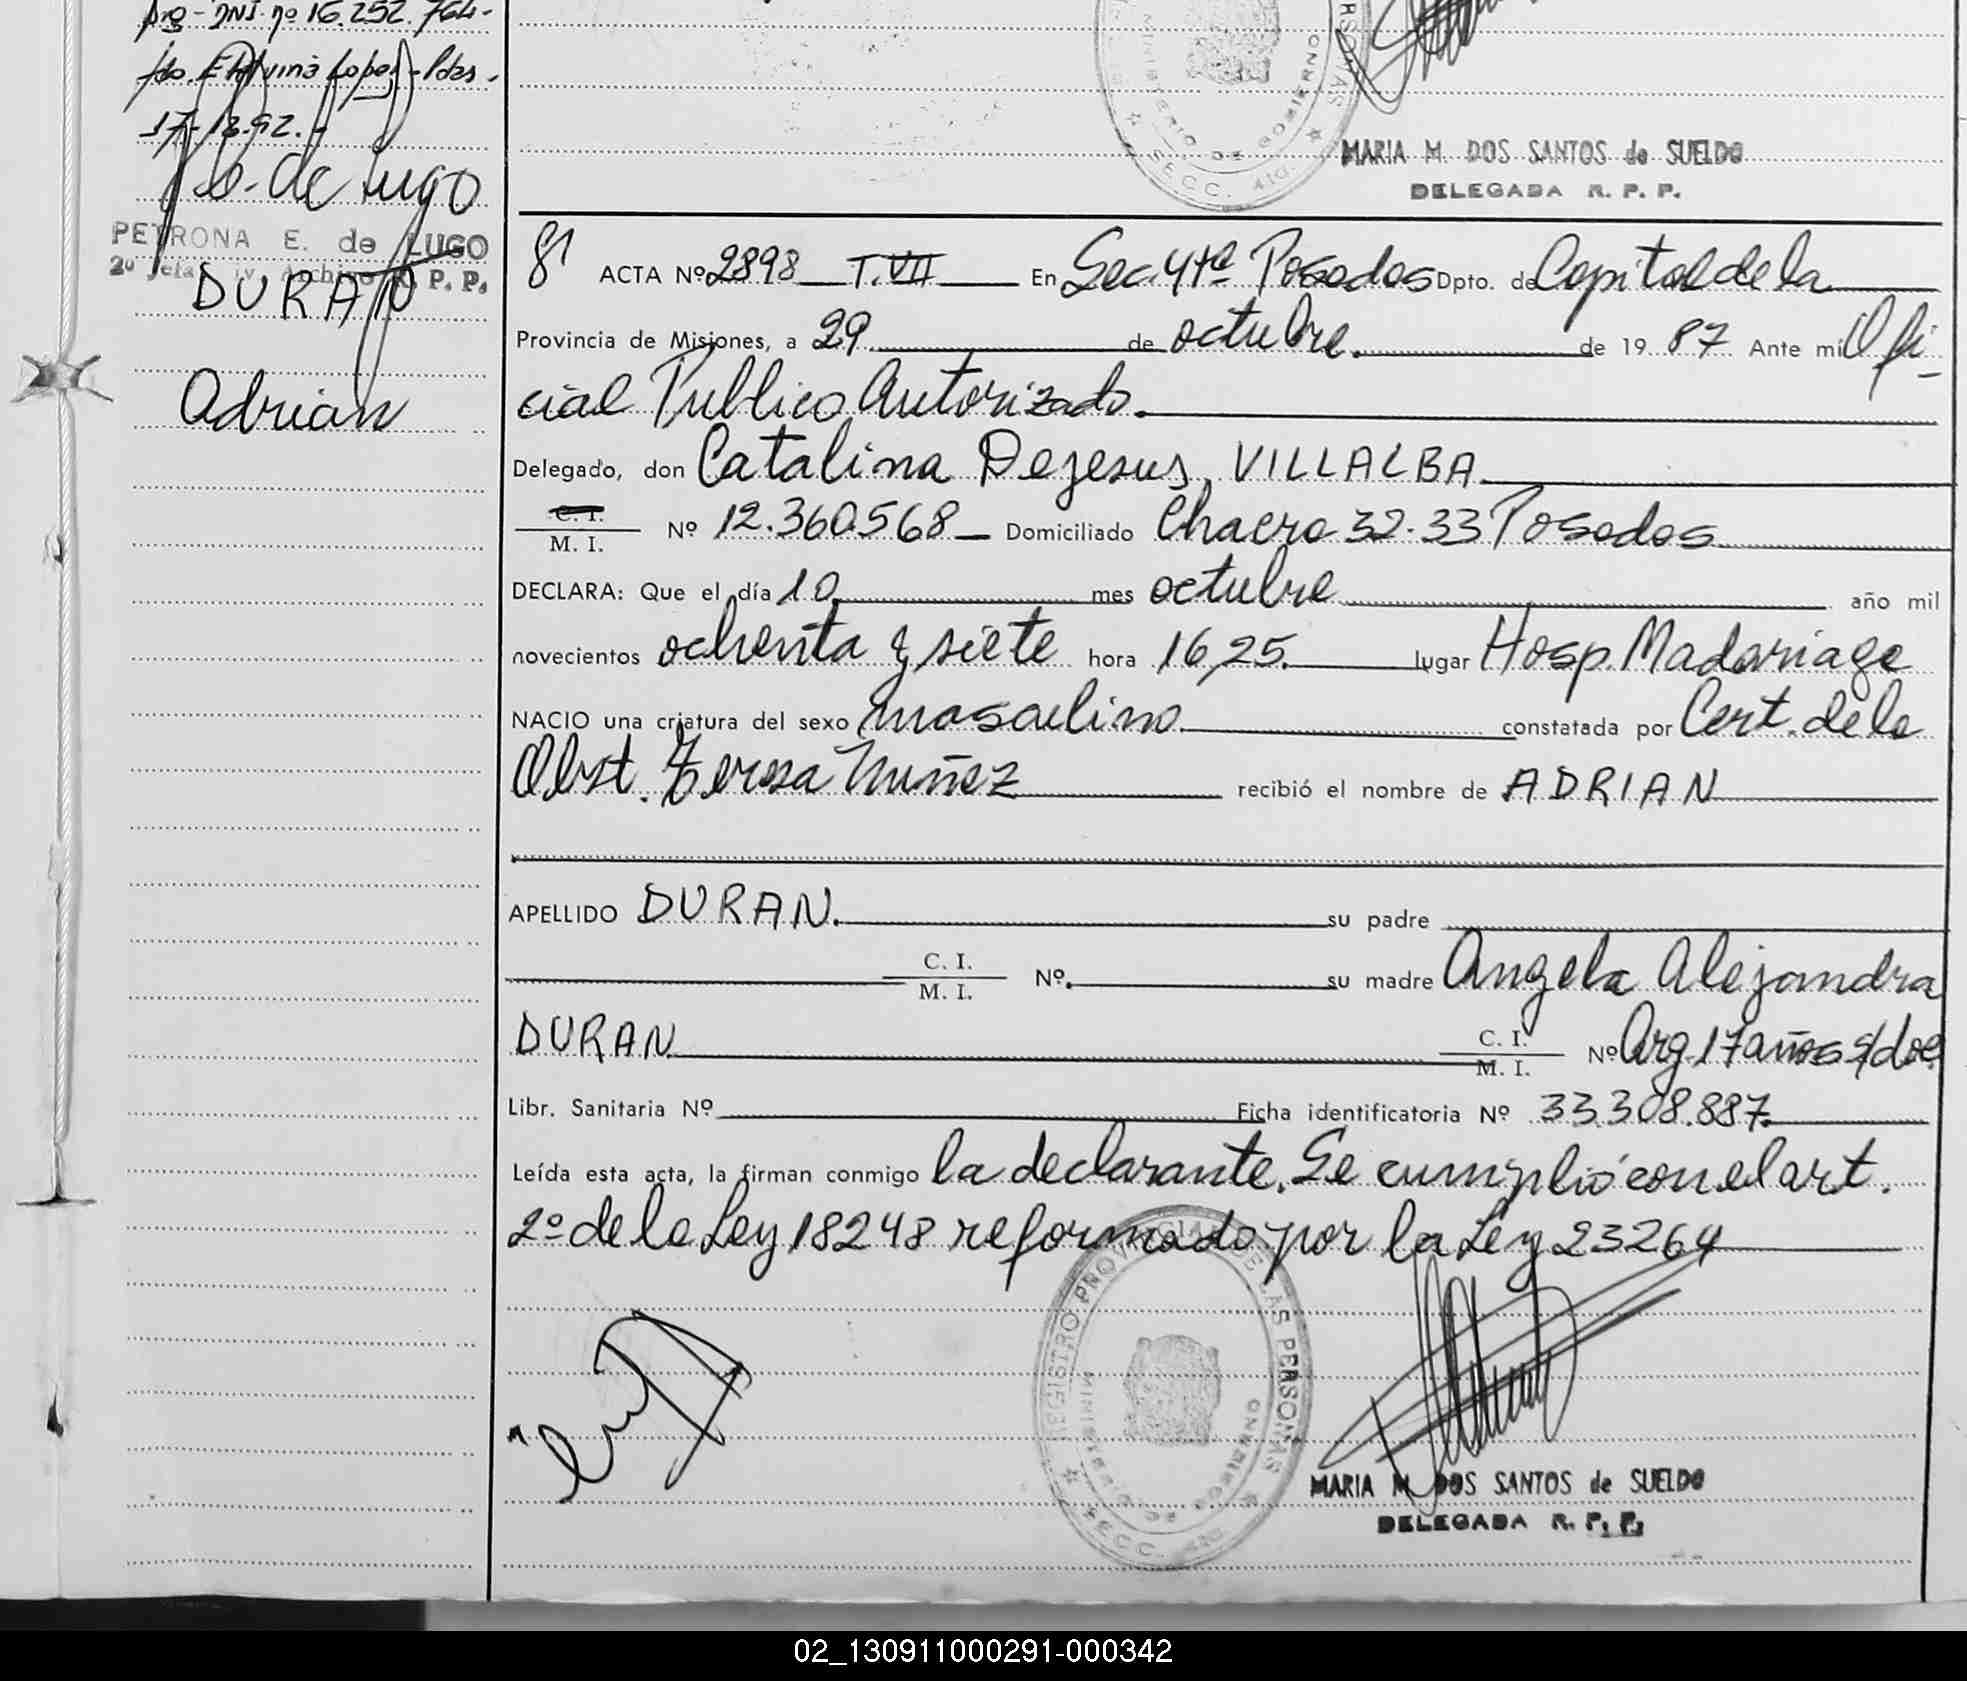 Arg - DNI. nº 16.252.764-
fdo. Etelvina Lopez - Pdas.
17-12-92.-
E. de Lugo
PETRONA E. de LUGO
2º Jefa Div. Archivo R. P. P.
DURAN
Adrián
MINISTERIO DE GOBIERNO
SECC. 4ta.
MARIA M. DOS SANTOS de SUELDO
DELEGADA R. P. P.
81 ACTA Nº 2898 T.VII En Sec. 4ta Posadas Dpto. de Capital de la
Provincia de Misiones, a 29 de octubre. de 19 87 Ante mi Ofi-
cial Publico Autorizado.
Delegado, don Catalina Dejesus VILLALBA
C. I.
M. I. Nº 12.360.568 Domiciliado Chacra 32-33 Posadas
DECLARA: Que el día 10 mes octubre año mil
novecientos ochenta y siete hora 16,25. lugar Hosp. Madariaga
NACIO una criatura del sexo masculino constatada por Cert. de la
Obst. Teresa Nuñez recibió el nombre de ADRIAN
APELLIDO DURAN. su padre
C. I.
M. I. Nº. su madre Angela Alejandra
DURAN C. I.
M. I. Nº Arg. 17 años s/doc.
Libr. Sanitaria Nº Ficha identificatoria Nº 33.308.887.
Leída esta acta, la firman conmigo la declarante. Se cumplió con el art.
2º de la Ley 18248 reformado por la Ley 23264
REGISTRO PROVINCIAL DE LAS PERSONAS
MINISTERIO DE GOBIERNO
SECC. 4ta.
MARIA M. DOS SANTOS de SUELDO
DELEGADA R. P. P.
02_130911000291-000342